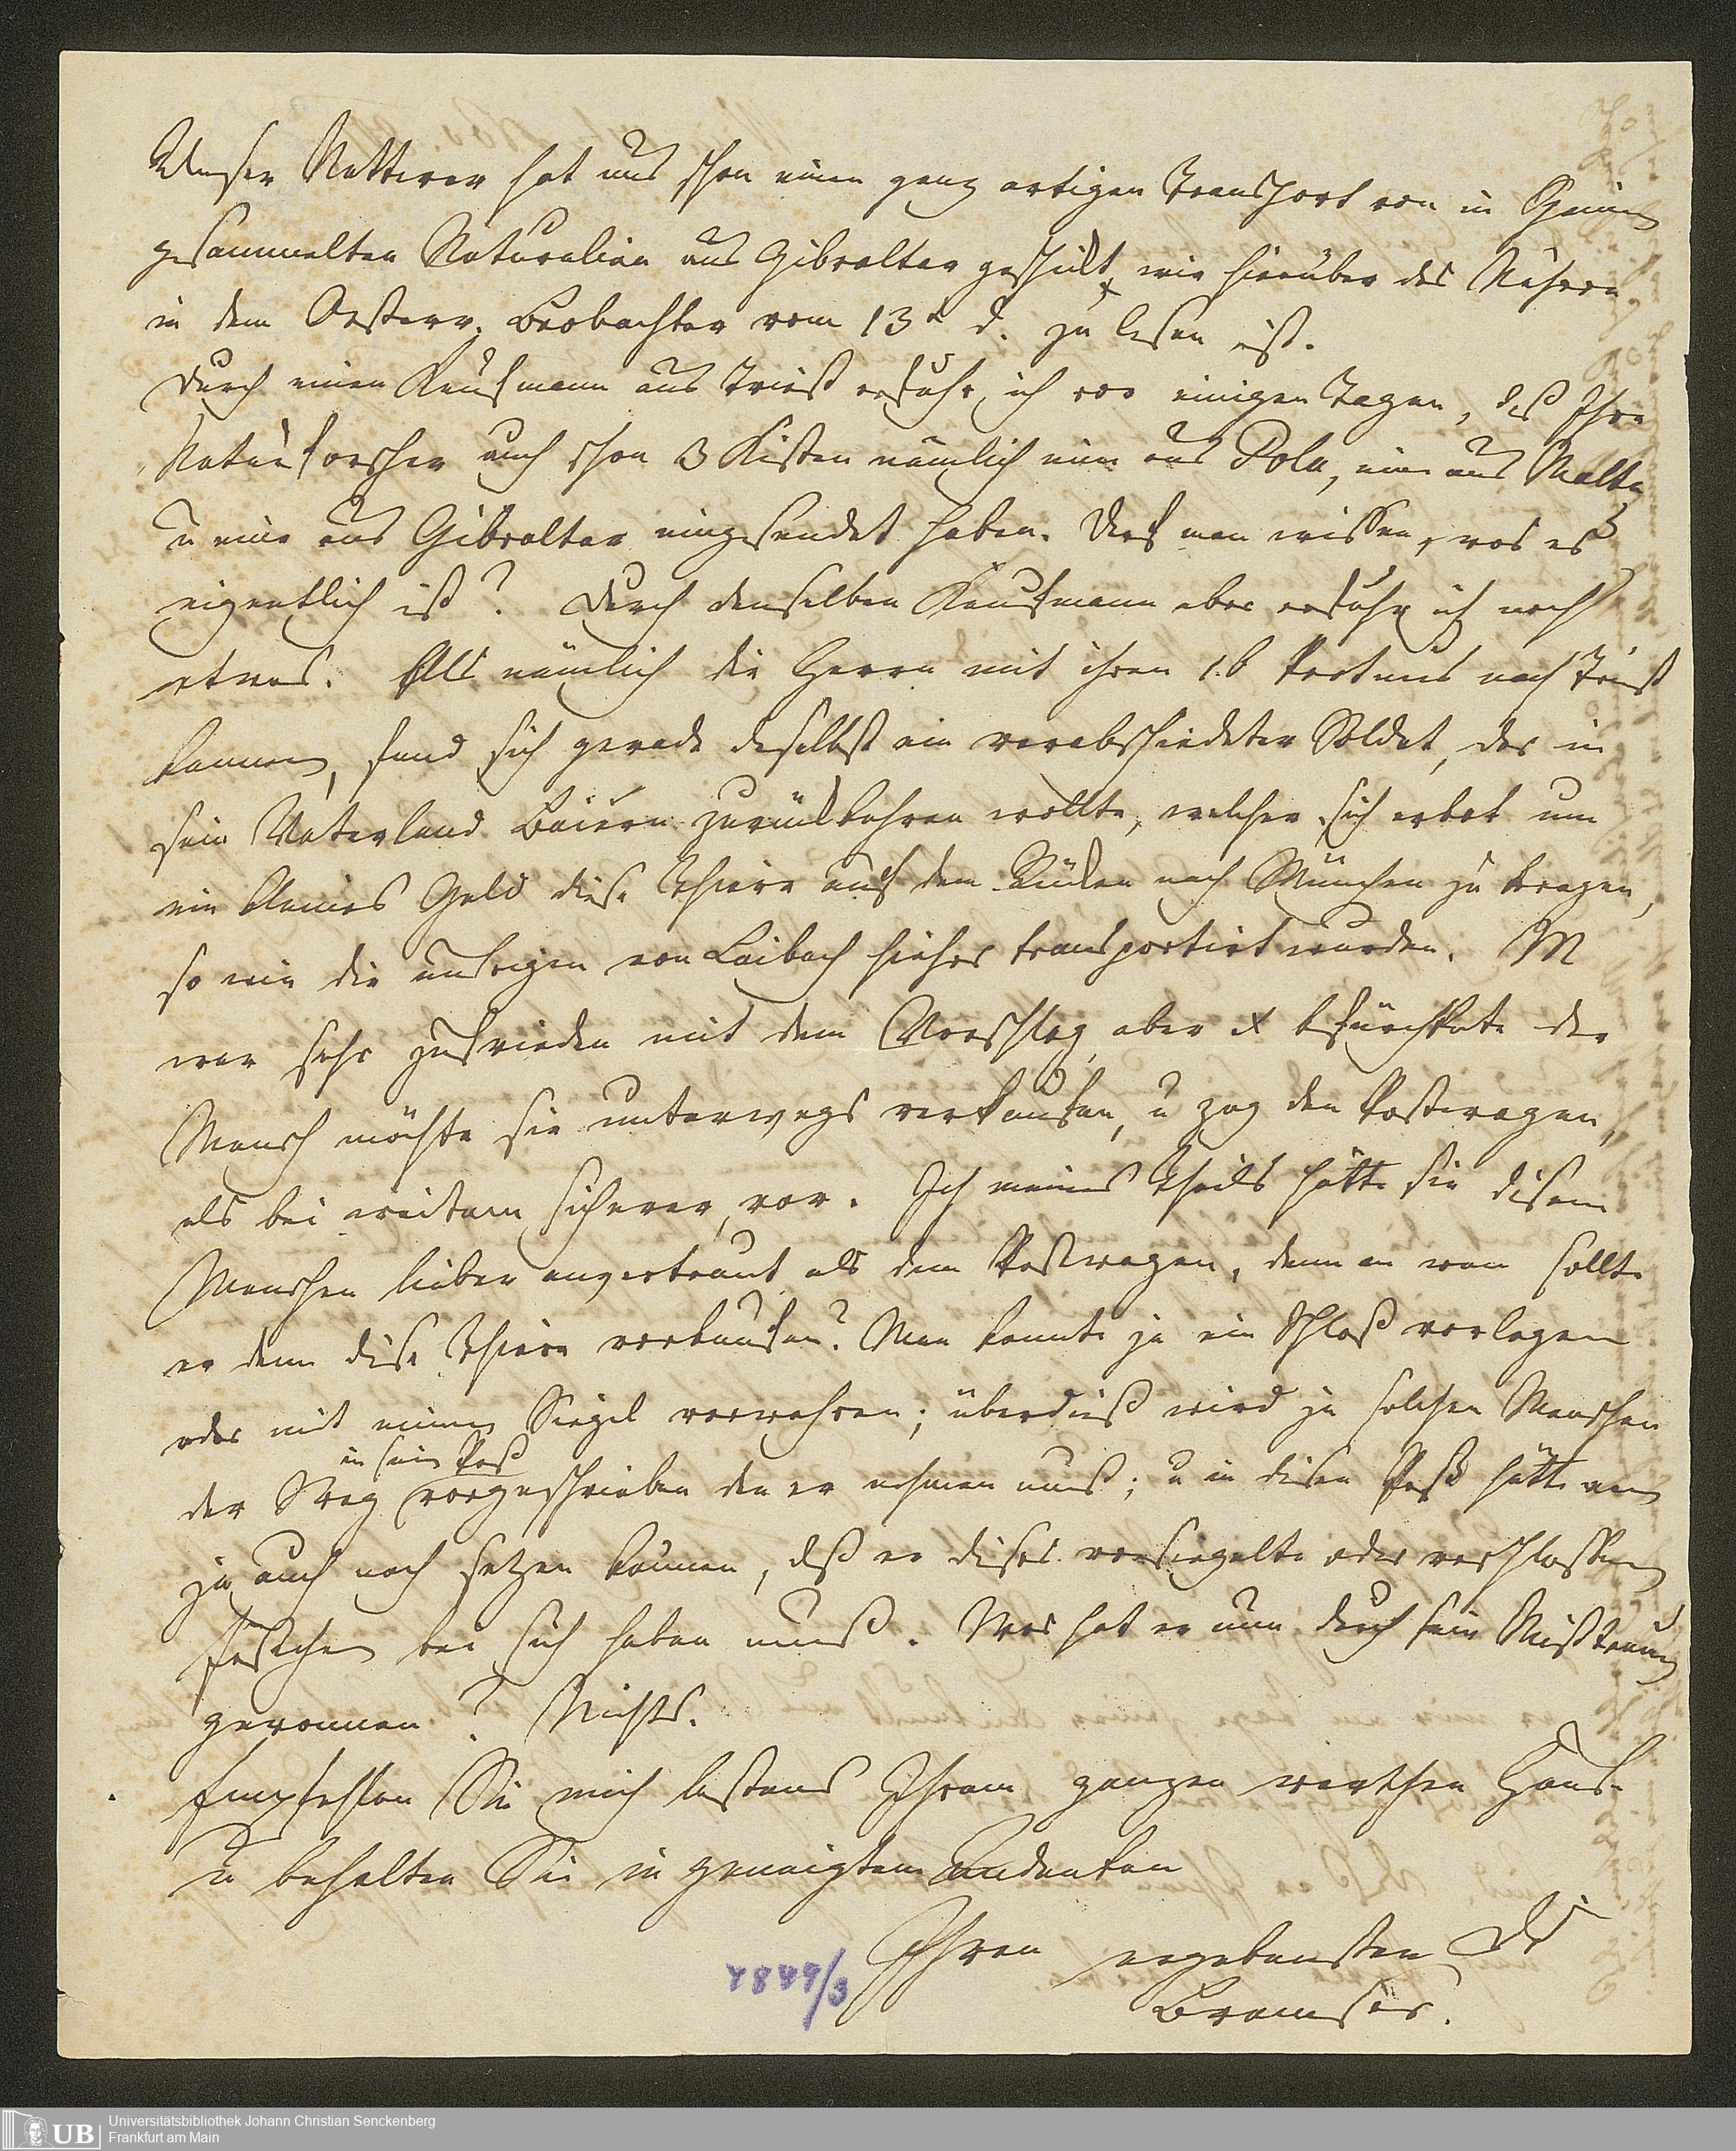 Unser Natterer hat uns schon einen ganz artigen Transport von in Spanien
gesammelten Naturalien aus Gibraltar geschickt, wie hierüber das Nähere
in dem Oesterr. Beobachter vom 13n d. zu lesen ist.
Durch einen Kaufmann aus Triest erfuhr ich vor einigen Tagen, daß Ihre
Naturforscher auch schon 3 Kisten nämlich eine aus Pola, eine aus Malta
u eine aus Gibraltar eingesendet haben. Darf man wissen, was es
eigentlich ist? Durch denselben Kaufmann aber erfuhr ich noch
etwas. Als nämlich die Herrn mit ihren 16 Proteus nach Triest
kamen, fand sich gerade daselbst ein verabschiedeter Soldat, der in
sein Vaterland Baiern zurückkehren wollte, welcher sich erbot um
ein kleines Geld diese Thiere auf dem Rücken nach München zu tragen,
so wie die unsrigen von Laibach hieher transportirt wurden. M
war sehr zufrieden mit dem Vorschlag, aber X befürchtete der
Mensch möchte sie unterwegs verkaufen, u zog den Postwagen,
als bei weitem sicherer, vor. Ich meines Theils hätte sie disem
Menschen lieber anvertraut als dem Postwagen, denn an wen sollte
er denn dise Thiere verkaufen? Man konnte ja ein Schloß vorlegen
oder mit einem Siegel verwahren; überdieß wird ja solchen Menschen
in sein Paß
der Weg vorgeschrieben den er nehmen muß; u in disen Paß hätte man
ja auch noch setzen können, daß er dises versiegelte oder verschlossene
Fäßchen bei sich haben muß. Was hat er nun durch sein Mißtrauen
gewonnen? Nichts.
Empfehlen Sie mich bestens Ihrem ganzen werthen Hause
u behalten Sie in geneigtem Andenken
Ihren ergebensten Dr
Bremser.
Universitätsbibliothek Johann Christian Senckenberg
Frankfurt am Main
UB